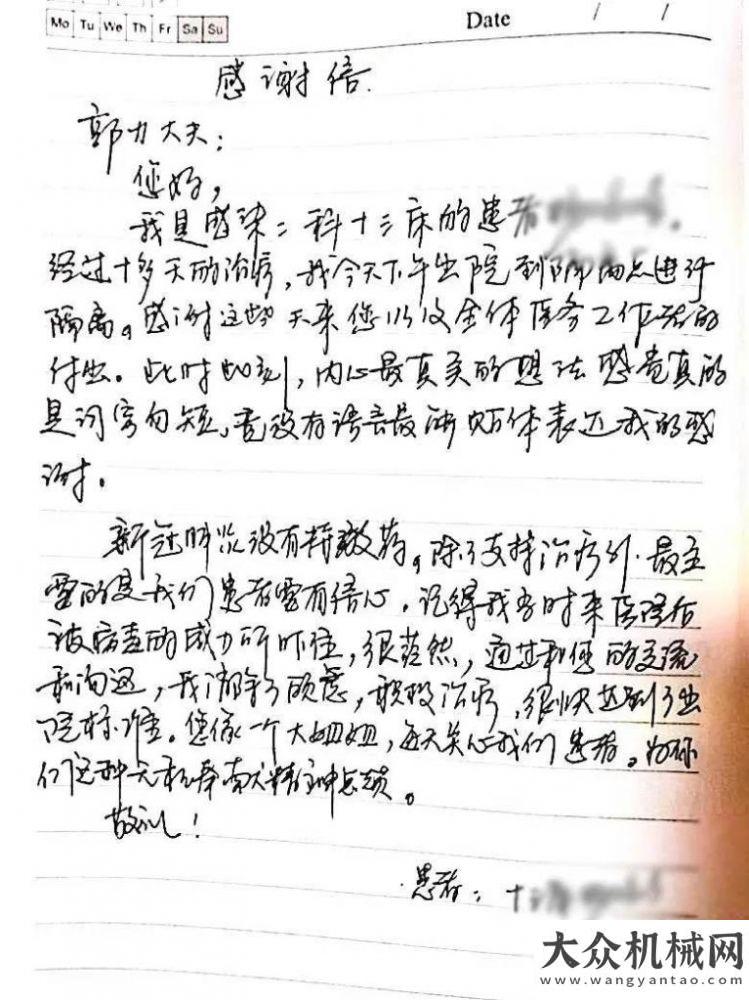 Mo Tu We Th Fr Sa Su
Date / /
感谢信.
郭力大夫:
您好,
我是感染二科十三床的患者
经过十多天的治疗,我今天下午出院到隔离点进行
隔离。感谢这些天来您以及全体医务工作者的
付出。此时此刻,内心最真实的想法感觉真的
是词穷句短,竟没有语言最能够体表达我的感
谢。
新冠肺炎没有特效药。除了支持治疗外.最主
要的是我们患者要有信心.记得我当时来医院后
被病毒的威力所吓住,很茫然,通过和您的交流
和沟通,我消除了顾虑,积极治疗,很快达到了出
院标准。您像一个大姐姐,每天关心我们患者。为你
们这种无私奉献精神点赞。
敬礼!
患者:
大众机械网
www.wangyantao.com